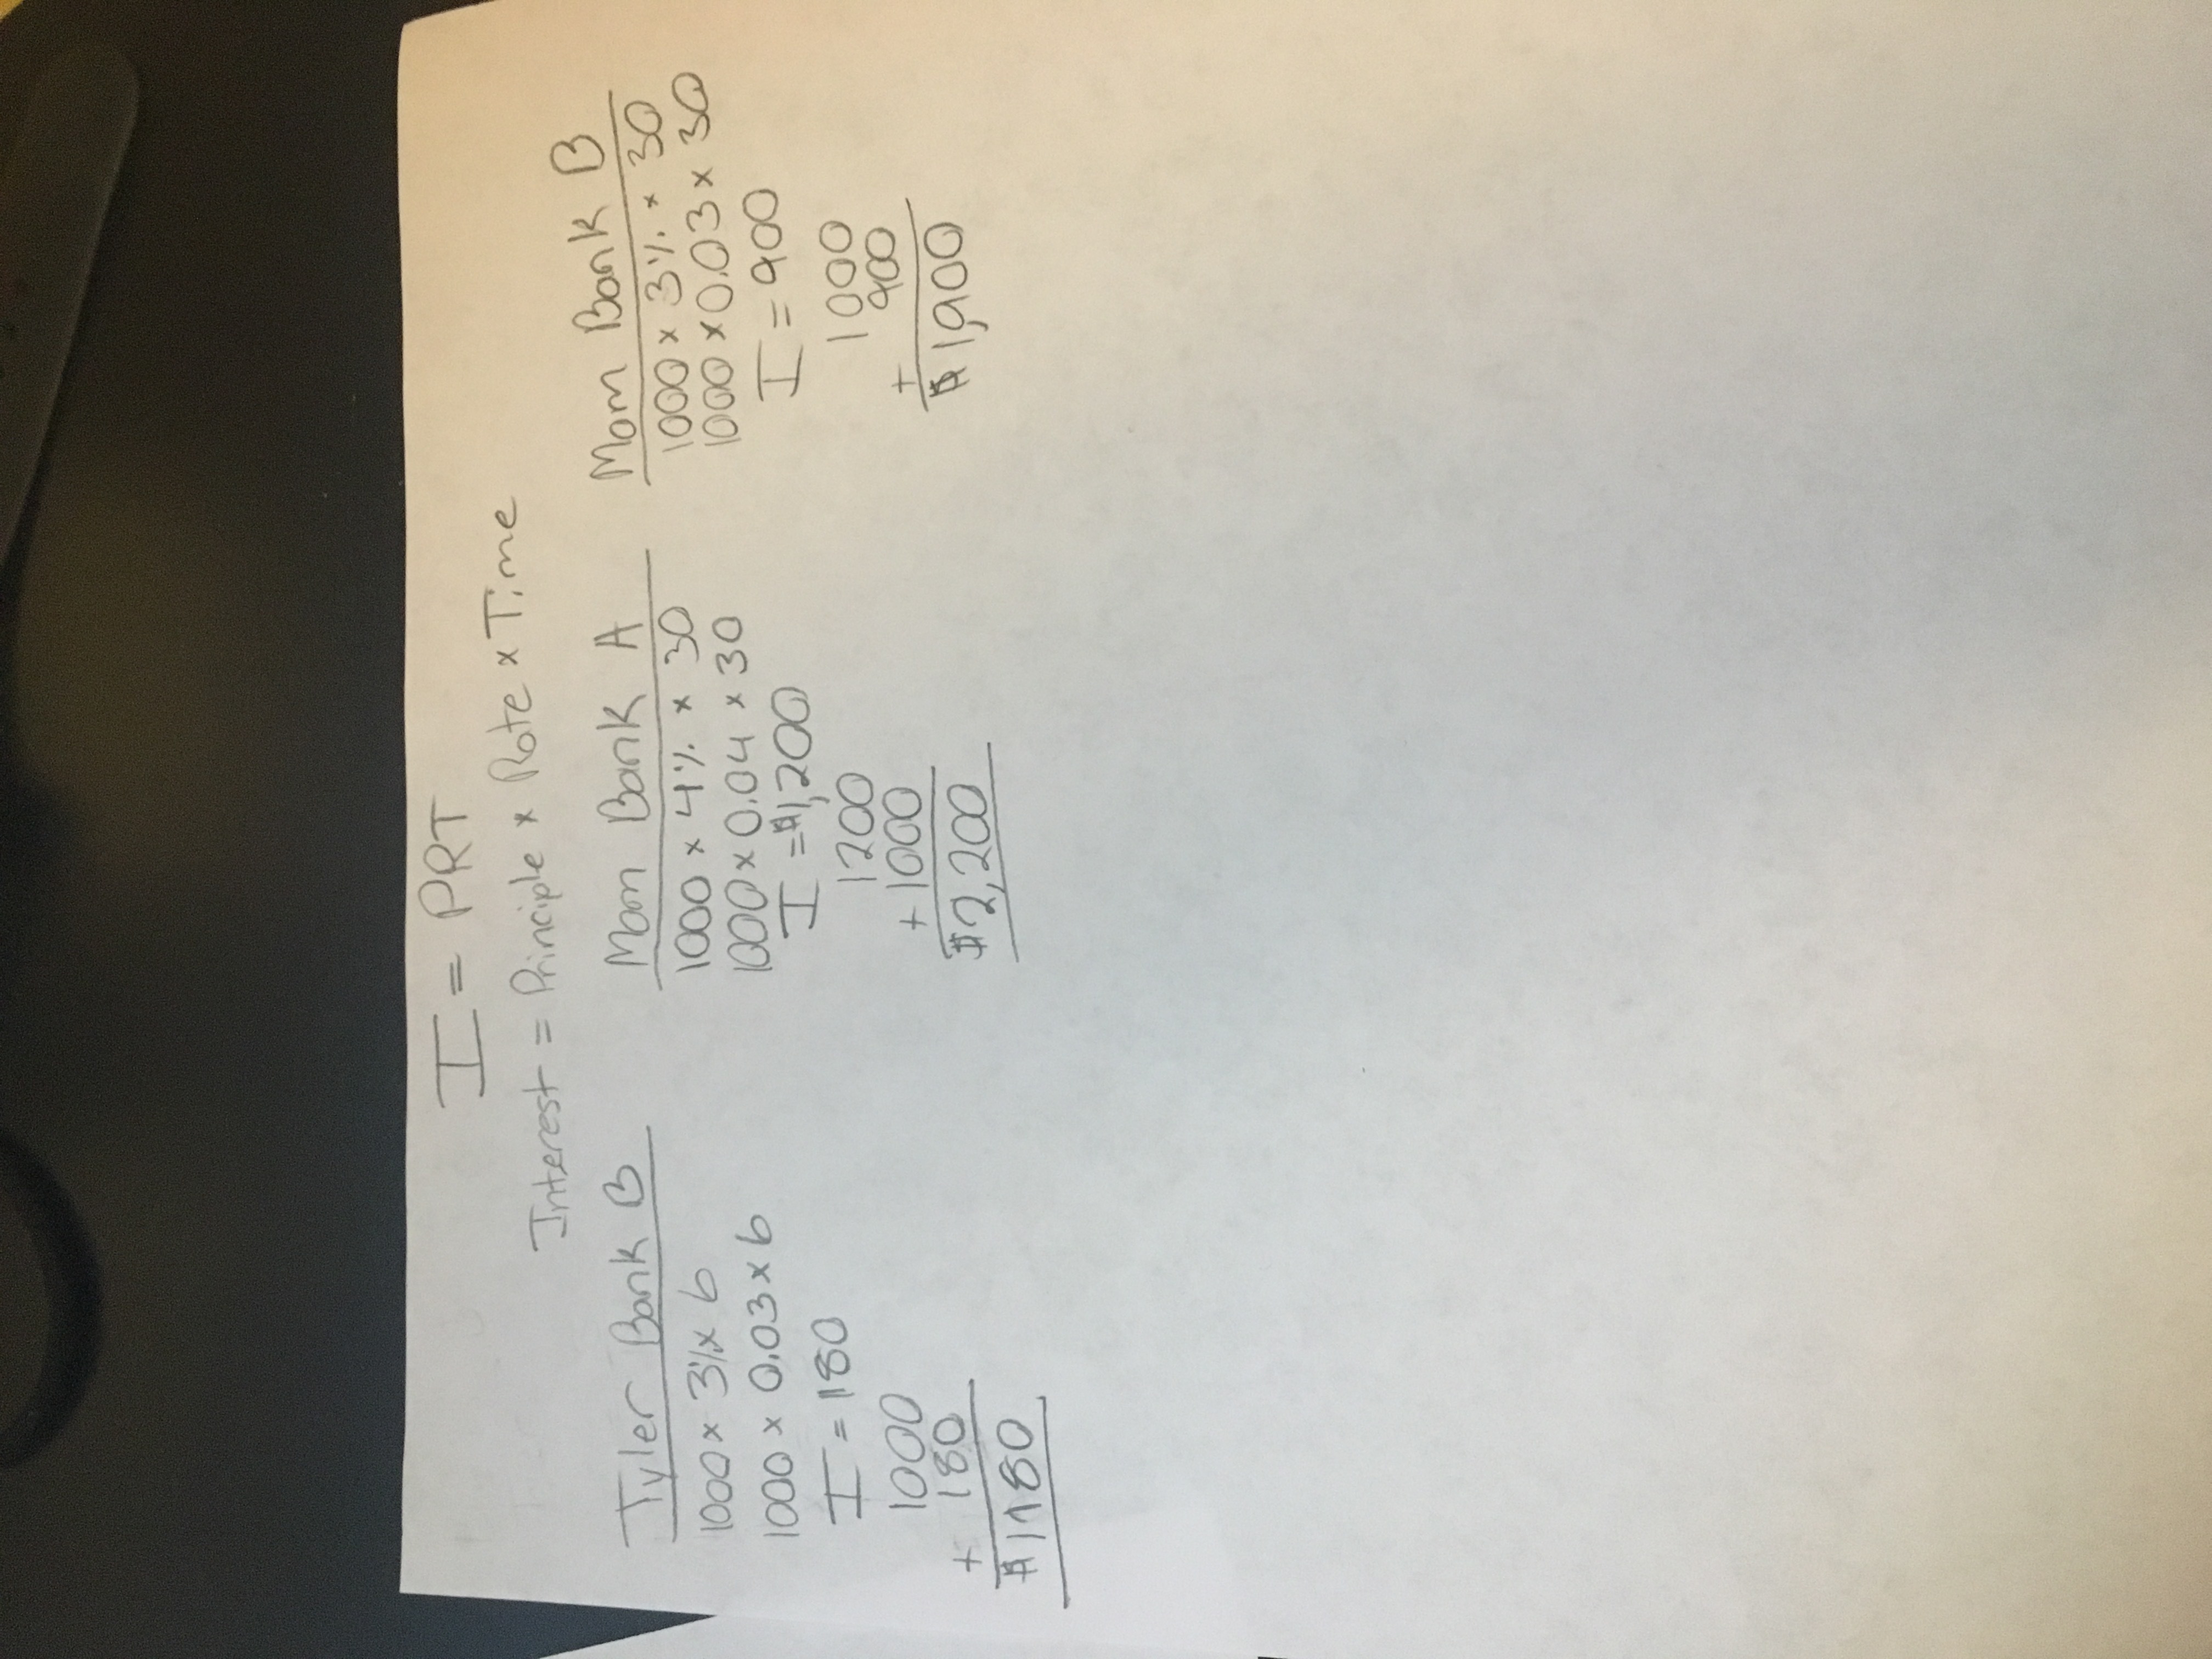 I = PRT
Interest = Principle x Rate x Time
Tyler Bank B
1000 x 3% x 6
1000 x 0.03 x 6
I = 180
1000
+ 180
$1180
Mom Bank A
1000 x 4% x 30
1000 x 0.04 x 30
I = $1,200
1200
+ 1000
$2,200
Mom Bank B
1000 x 3% x 30
1000 x 0.03 x 30
I = 900
1000
+ 900
$1,900